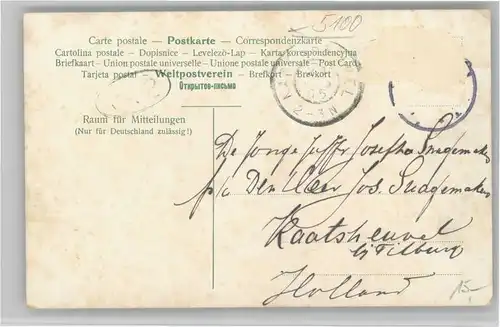 5100
Carte postale — Postkarte — Correspondenzkarte
Cartolina postale — Dopisnice — Levelező-Lap — Karta korespondencyjna
Briefkaart — Union postale universelle — Unione postale universale — Post Card
Tarjeta postal — Weltpostverein — Brefkort — Brevkort
Открытое письмо
Raum für Mitteilungen
(Nur für Deutschland zulässig!)
De Jonge Juffr. Josepha Snagemakers
p/a Den Heer Jos. Snagemakers
Kaatsheuvel
bij Tilburg
Holland
15-